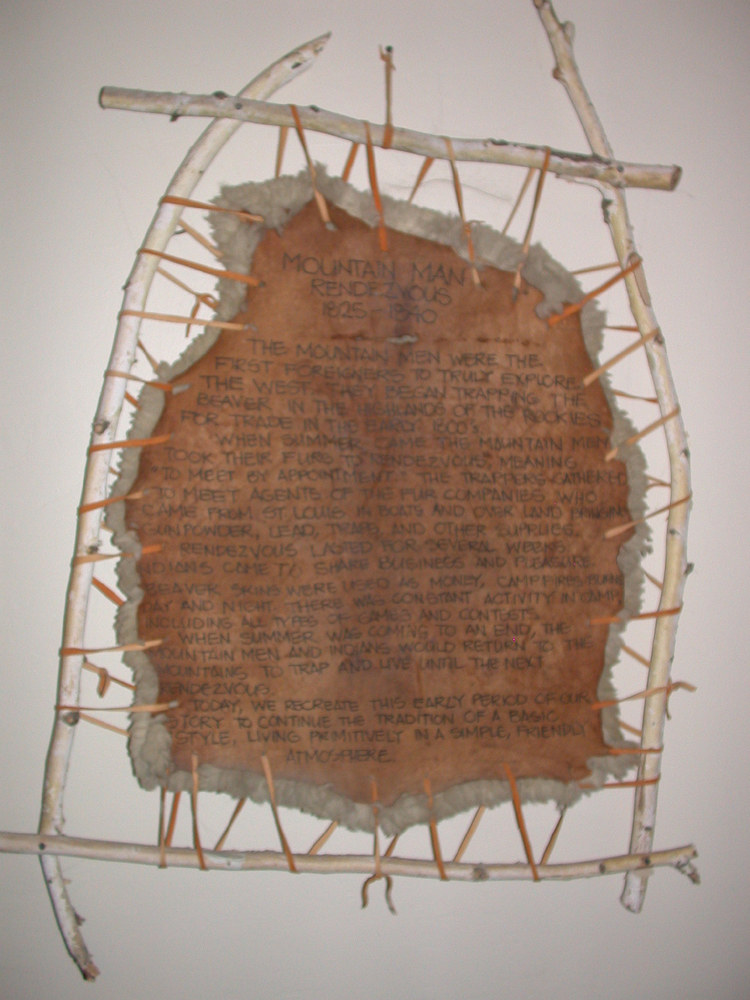 MOUNTAIN MAN
RENDEZVOUS
1825-1840
THE MOUNTAIN MEN WERE THE
FIRST FOREIGNERS TO TRULY EXPLORE
THE WEST. THEY BEGAN TRAPPING THE
BEAVER IN THE HIGHLANDS OF THE ROCKIES
FOR TRADE IN THE EARLY 1800'S.
WHEN SUMMER CAME THE MOUNTAIN MEN
TOOK THEIR FURS TO "RENDEZVOUS," MEANING
"TO MEET BY APPOINTMENT." THE TRAPPERS GATHERED
TO MEET AGENTS OF THE FUR COMPANIES WHO
CAME FROM ST. LOUIS IN BOATS AND OVER LAND BRINGING
GUNPOWDER, LEAD, TRAPS, AND OTHER SUPPLIES.
RENDEZVOUS LASTED FOR SEVERAL WEEKS.
INDIANS CAME TO SHARE BUSINESS AND PLEASURE.
BEAVER SKINS WERE USED AS MONEY, CAMPFIRES BURNED
DAY AND NIGHT. THERE WAS CONSTANT ACTIVITY IN CAMP,
INCLUDING ALL TYPES OF GAMES AND CONTESTS.
WHEN SUMMER WAS COMING TO AN END, THE
MOUNTAIN MEN AND INDIANS WOULD RETURN TO THE
MOUNTAINS TO TRAP AND LIVE UNTIL THE NEXT
RENDEZVOUS.
TODAY, WE RECREATE THIS EARLY PERIOD OF OUR
HISTORY TO CONTINUE THE TRADITION OF A BASIC
STYLE, LIVING PRIMITIVELY IN A SIMPLE, FRIENDLY
ATMOSPHERE.